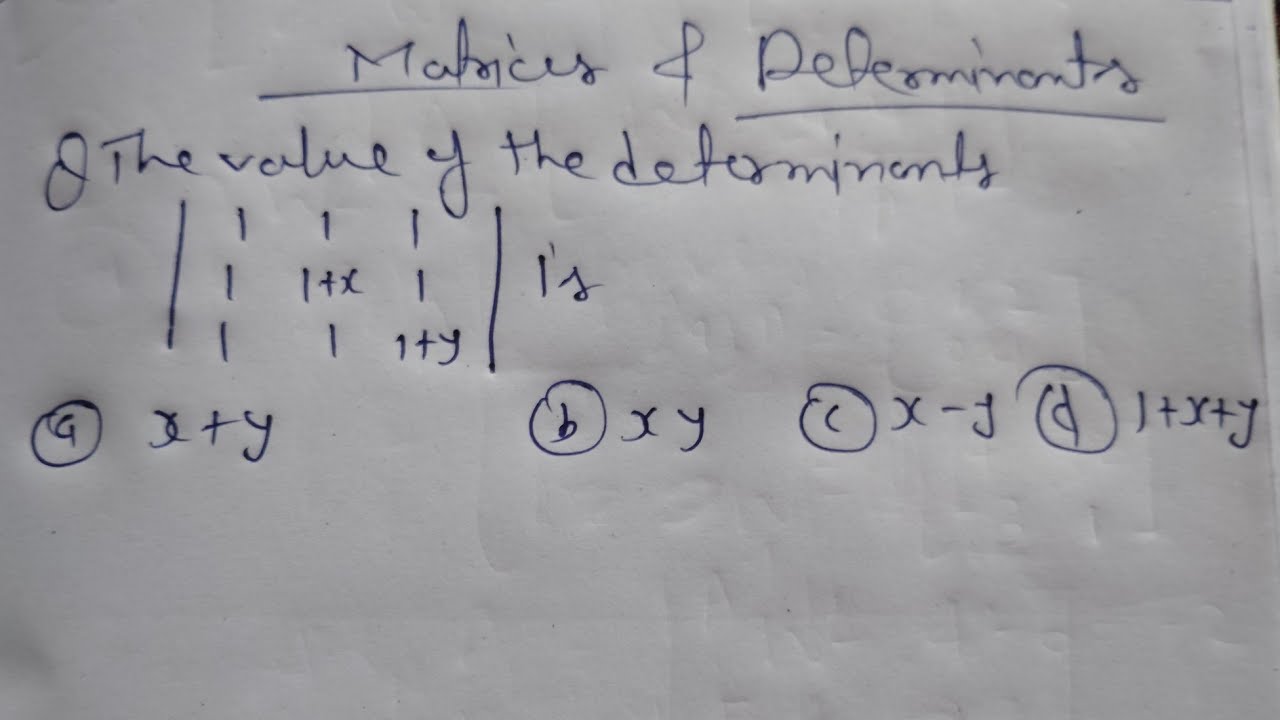 Matrices & Determinants
Q The value of the determinants
| 1 1 1 |
| 1 1+x 1 | is
| 1 1 1+y |
(a) x+y (b) xy (c) x-y (d) 1+x+y